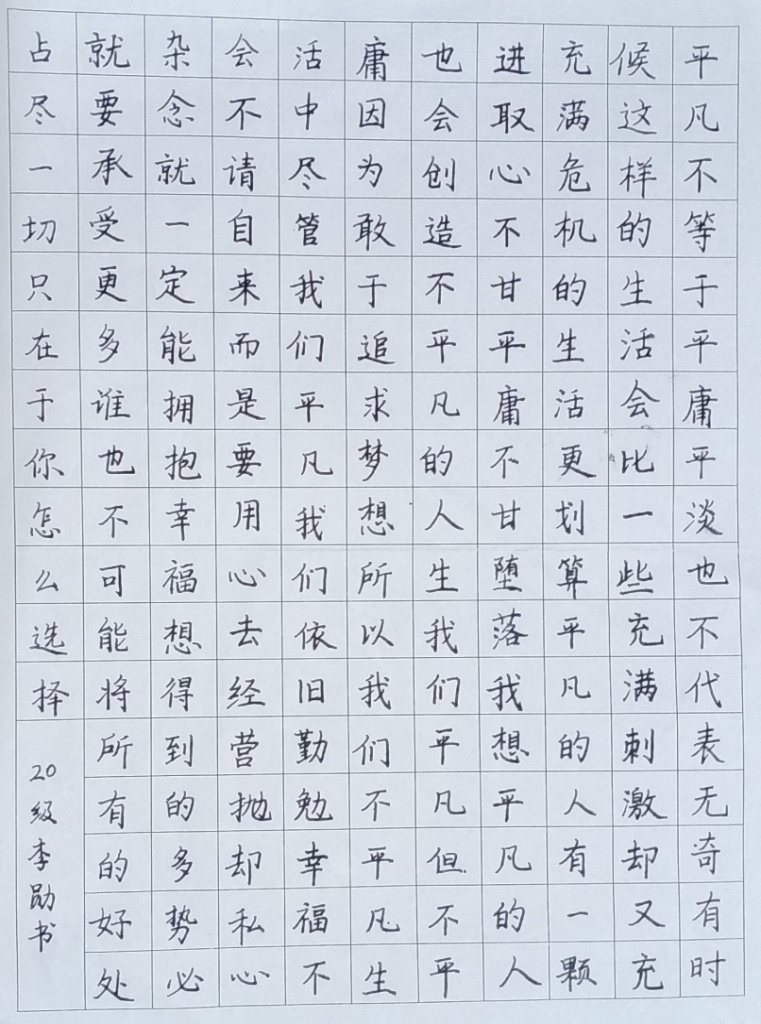 平凡不等于平庸平淡也不代表无奇有时
候这样的生活会比一些充满刺激却又充
充满危机的生活更划算平凡的人有一颗
进取心不甘平庸不甘堕落我想平凡的人
也会创造不平凡的人生我们平凡但不平
庸因为敢于追求梦想所以我们不平凡生
活中尽管我们平凡我们依旧勤勉幸福不
会不请自来而是要用心去经营抛却私心
杂念就一定能拥抱幸福想得到的多势必
就要承受更多谁也不可能将所有的好处
占尽一切只在于你怎么选择
20级李勋书